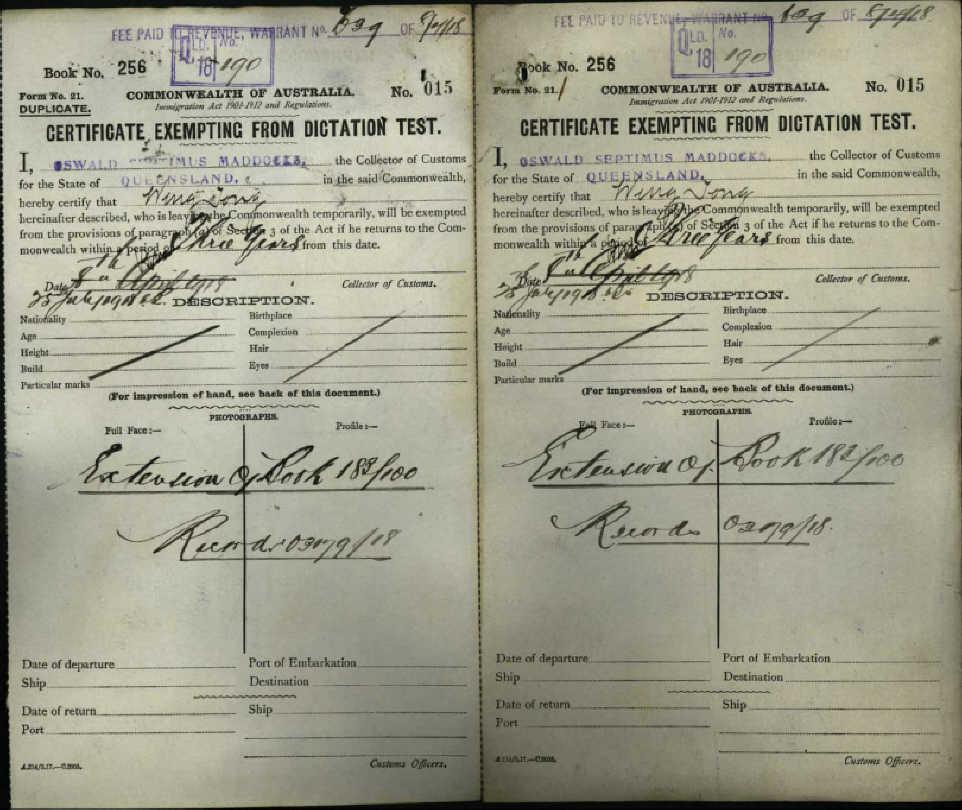 FEE PAID TO REVENUE, WARRANT No. 639 OF
QLD. No.
18 190
Book No. 256
Form No. 21.
DUPLICATE.
COMMONWEALTH OF AUSTRALIA.
No. 015
Immigration Act 1901-1912 and Regulations.
CERTIFICATE EXEMPTING FROM DICTATION TEST.
I, OSWALD SEPTIMUS MADDOCKS, the Collector of Customs
for the State of QUEENSLAND, in the said Commonwealth,
hereby certify that Wing Tong
hereinafter described, who is leaving the Commonwealth temporarily, will be exempted
from the provisions of paragraph (a) of Section 3 of the Act if he returns to the Com-
monwealth within a period of Three Years from this date.
Date 8th April 1918
25 July 1918
Collector of Customs.
DESCRIPTION.
Nationality Birthplace
Age Complexion
Height Hair
Build Eyes
Particular marks
(For impression of hand, see back of this document.)
PHOTOGRAPHS.
Full Face:— Profile:—
Extension of Book 183/100
Records 03079/18
Date of departure Port of Embarkation
Ship Destination
Date of return Ship
Port
Customs Officers.
FEE PAID TO REVENUE, WARRANT No. 639 OF
QLD. No.
18 190
Book No. 256
Form No. 21.
COMMONWEALTH OF AUSTRALIA.
No. 015
Immigration Act 1901-1912 and Regulations.
CERTIFICATE EXEMPTING FROM DICTATION TEST.
I, OSWALD SEPTIMUS MADDOCKS, the Collector of Customs
for the State of QUEENSLAND, in the said Commonwealth,
hereby certify that Wing Tong
hereinafter described, who is leaving the Commonwealth temporarily, will be exempted
from the provisions of paragraph (a) of Section 3 of the Act if he returns to the Com-
monwealth within a period of Three Years from this date.
Date 8th April 1918
25 July 1918
Collector of Customs.
DESCRIPTION.
Nationality Birthplace
Age Complexion
Height Hair
Build Eyes
Particular marks
(For impression of hand, see back of this document.)
PHOTOGRAPHS.
Full Face:— Profile:—
Extension of Book 183/100
Records 03079/18.
Date of departure Port of Embarkation
Ship Destination
Date of return Ship
Port
Customs Officers.